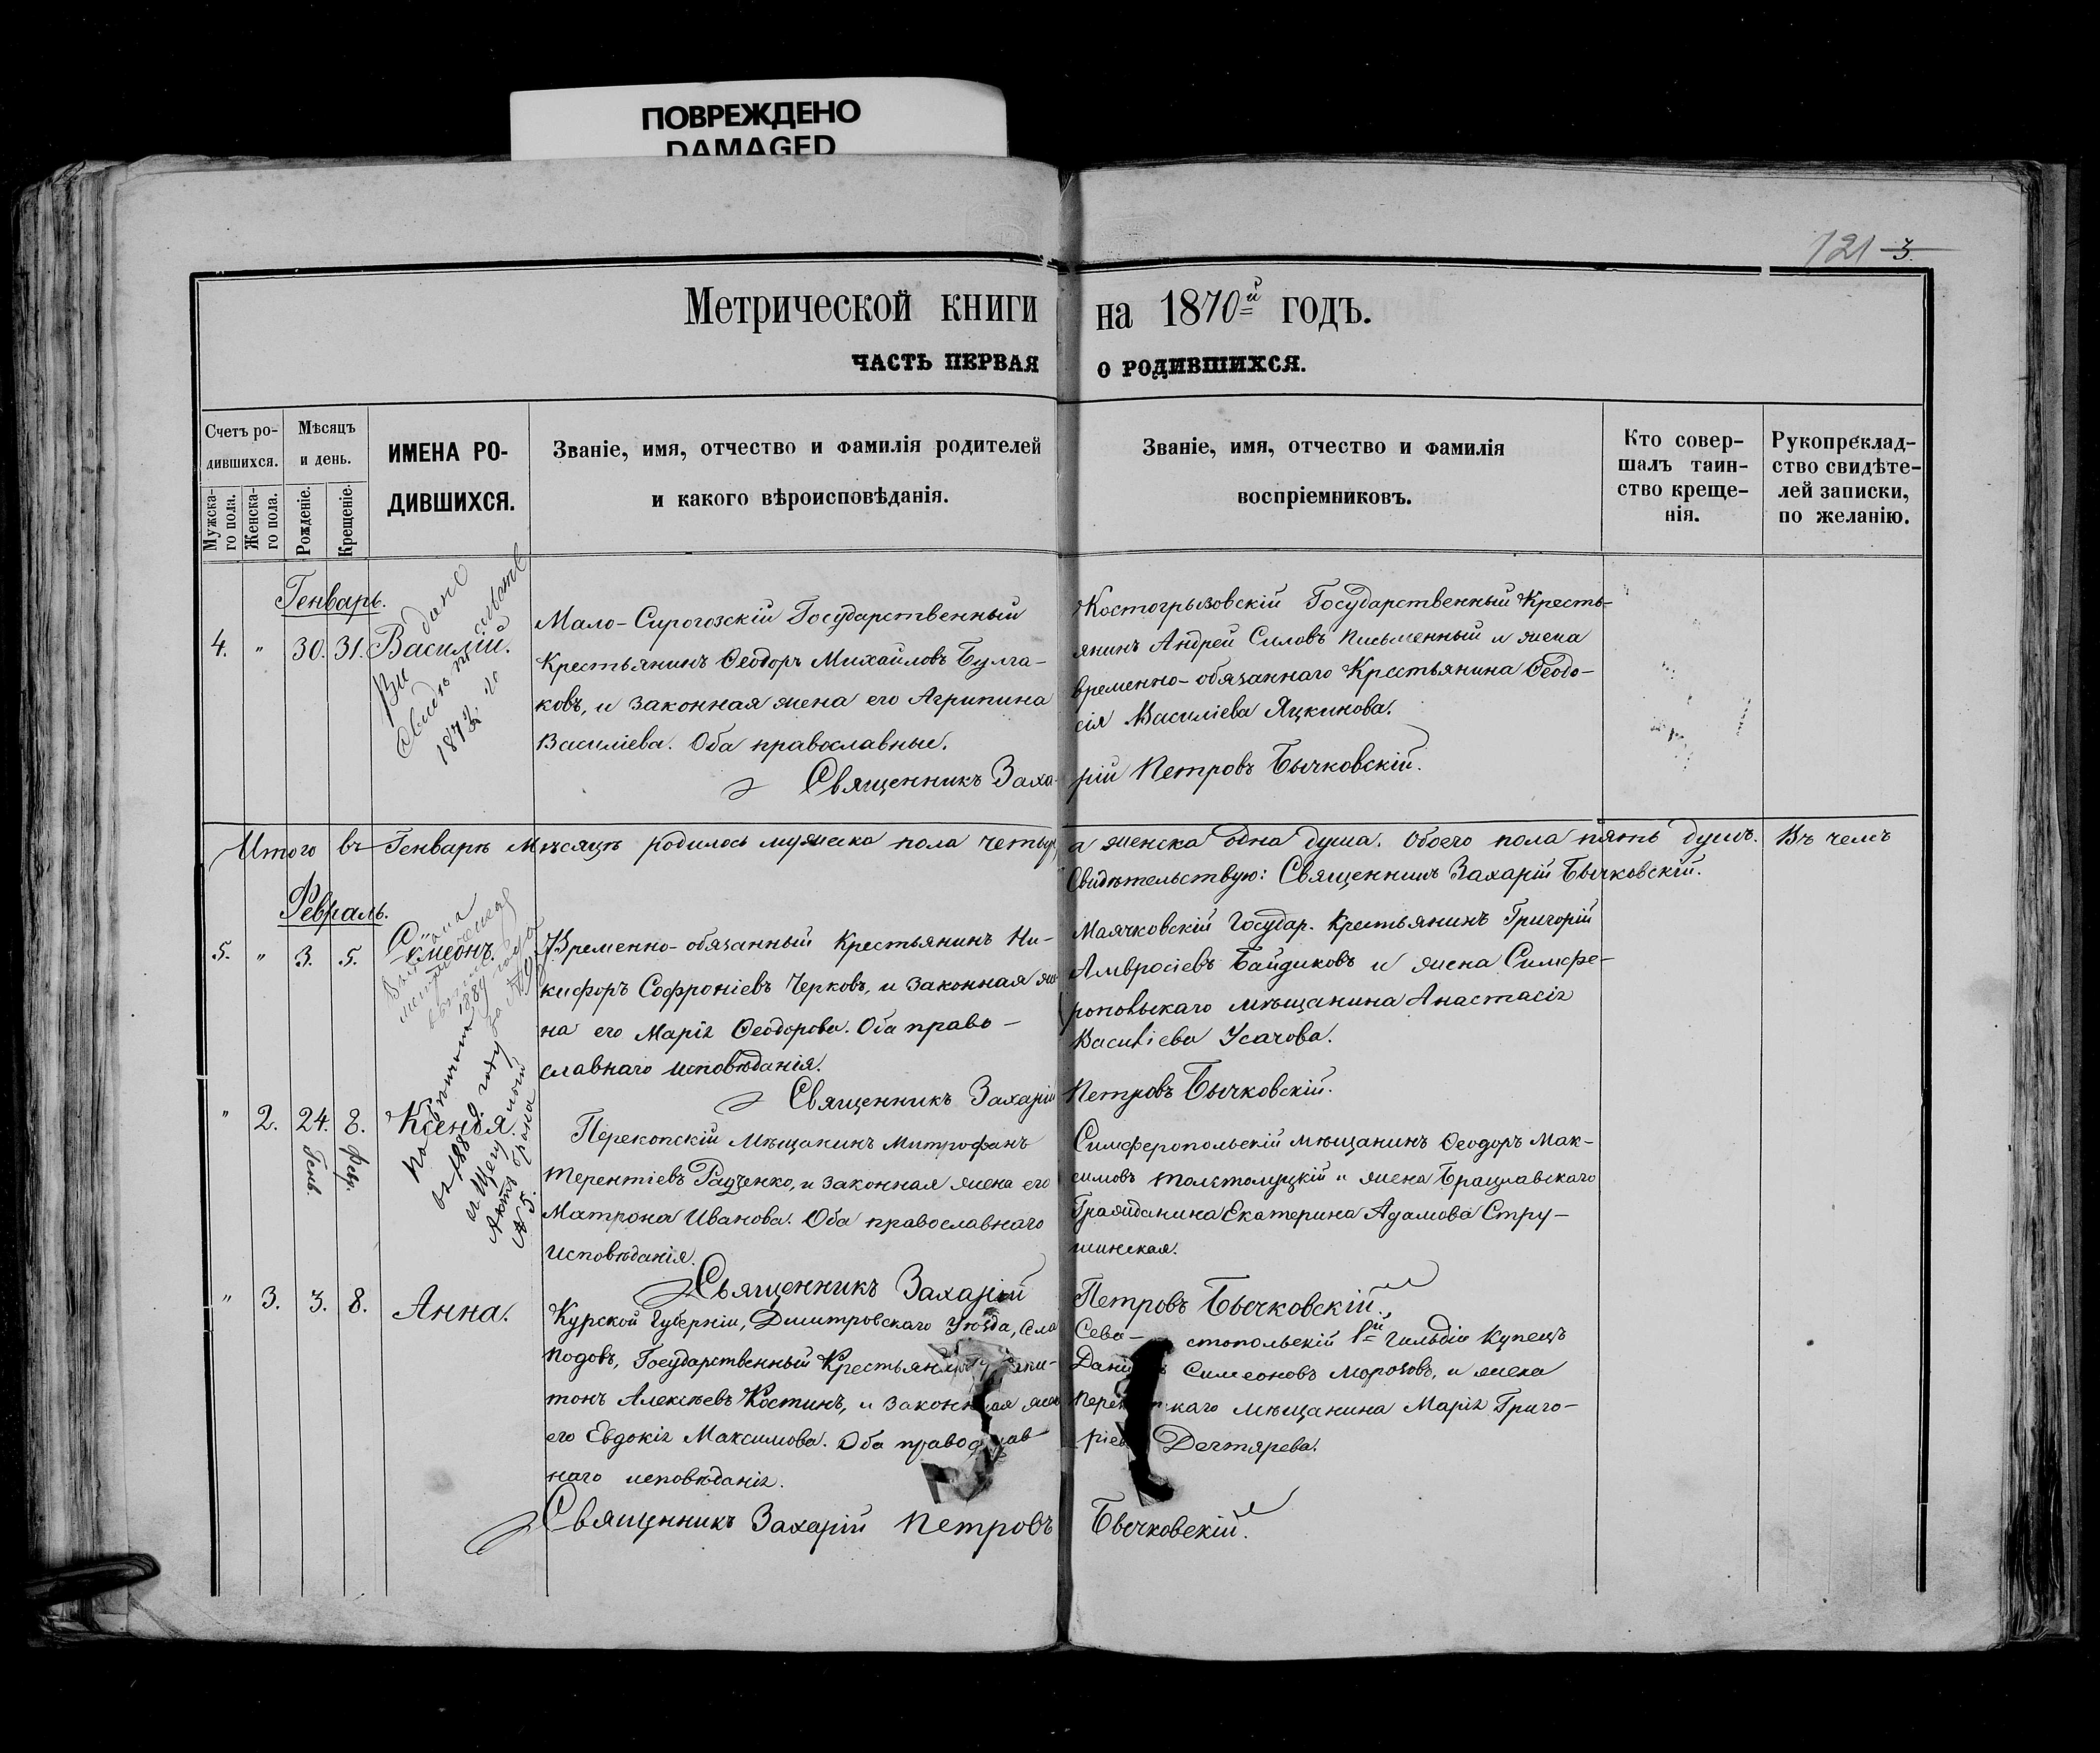 ПОВРЕЖДЕНО
DAMAGED
121 3.
Метрической книги на 1870й годъ.
ЧАСТЬ ПЕРВАЯ О РОДИВШИХСЯ.
Счетъ ро-
дившихся.
Мужска-
го пола.
Женска-
го пола.
Мѣсяцъ
и день.
Рожденіе.
Крещеніе.
ИМЕНА РО-
ДИВШИХСЯ.
Званіе, имя, отчество и фамилія родителей
и какого вѣроисповѣданія.
Званіе, имя, отчество и фамилія
воспріемниковъ.
Кто совер-
шалъ таин-
ство креще-
нія.
Рукопреклад-
ство свидѣте-
лей записки,
по желанію.
Генварь.
4. " 30. 31. Василій.
Мало-Сирогозскій Государственный
Крестьянинъ Ѳеодоръ Михайловъ Булга-
ковъ, и законная жена его Агрипина
Василіева. Оба православные.
Костогрызовскій Государственный Кресть-
янинъ Андрей Силовъ Письменный и жена
временно-обязаннаго Крестьянина Ѳеодо-
сія Василіева Яцкинова.
Священникъ Заха- рій Петровъ Бычковскій.
Итого въ Генварѣ Мѣсяцѣ родилось мужеска пола четыре, а женска одна душа. Обоего пола пять душъ. Въ чемъ
Свидѣтельствую: Священникъ Захарій Бычковскій.
Февраль.
5. " 3. 5. Симеонъ.
Временно-обязанный Крестьянинъ Ни-
кифоръ Софроніевъ Черковъ, и законная же-
на его Марія Ѳеодорова. Оба право-
славнаго исповѣданія.
Маячковскій Государ. Крестьянинъ Григорій
Амвросіевъ Байдиковъ и жена Симфе-
ропольскаго мѣщанина Анастасія
Василіева Усачова.
Священникъ Захарій Петровъ Бычковскій.
" 2. 24. 8. Ксенья.
Генв. Февр.
Перекопскій Мѣщанинъ Митрофанъ
Терентіевъ Радченко, и законная жена его
Матрона Иванова. Оба православнаго
исповѣданія.
Симферопольскій мѣщанинъ Ѳеодоръ Мак-
симовъ Толстолуцкій и жена Брацлавскаго
Гражданина Екатерина Адамова Стру-
шинская.
Священникъ Захарій Петровъ Бычковскій.
" 3. 3. 8. Анна.
Курской Губерніи, Дмитровскаго Уѣзда, Села
Подовъ, Государственный Крестьянинъ
тонъ Алексѣевъ Костинъ, и законная жена
его Евдокія Максимова. Оба православ
наго исповѣданія.
Сева- стопольскій 1й гильдіи Купецъ
Симеоновъ Морозовъ, и жена
мѣщанина Марія Григо-
ріева Дегтярева.
Священникъ Захарій Петровъ Бычковскій.